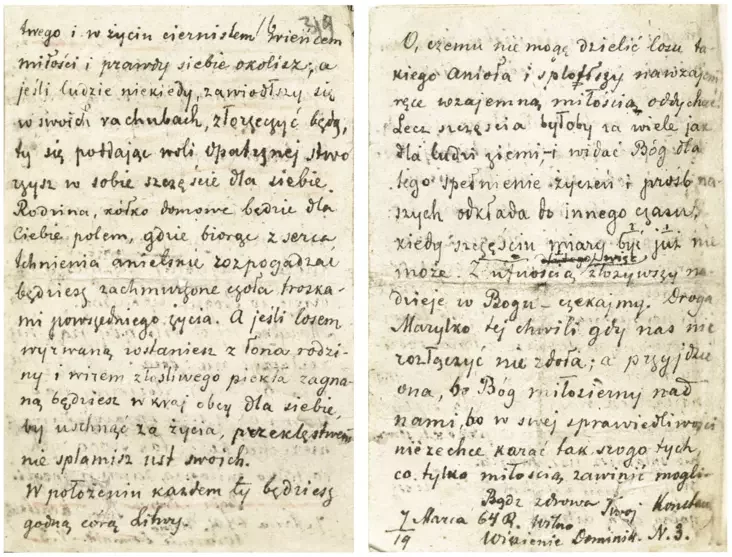 319
twego i w życiu ciernistem wieńcem
miłości i prawdy siebie okolisz; a
jeśli ludzie niekiedy, zawiódłszy się
w swoich rachubach, złorzeczyć będą,
ty się poddając woli Opatrznej stwo
rzysz w sobie szczęście dla siebie.
Rodzina, kółko domowe będzie dla
Ciebie polem, gdzie biorąc z serca
tchnienia anielskie rozpogadzać
będziesz zachmurzone czoła troska-
mi powszedniego życia. A jeśli losem
wyrwaną zostaniesz z łona rodzi-
ny i wirem złośliwego piekła zagna-
ną będziesz w kraj obcy dla siebie,
by uschnąć za życia, przeklęstwem
nie splamisz ust swoich.
W położeniu każdem ty będziesz
godną córą Litwy.
O, czemu nie mogę dzielić losu ta-
kiego Anioła i splótłszy nawzajem
ręce wzajemną miłością oddychać.
Lecz szczęścia byłoby za wiele jak
dla ludzi ziemi, i widać Bóg dla
tego spełnienie życzeń i prośb na
szych odkłada do innego czasu,
kiedy szczęściu miary być już nie
może. Z ufnością złożywszy na
dzieje w Bogu – czekajmy. Droga
Marylko tej chwili gdy nas nic
rozłączyć nie zdoła; a przyjdzie
ona, bo Bóg miłosierny nad
nami, bo w swej sprawiedliwości
niezechce karać tak srogo tych,
co tylko miłością zawinić mogli.
Bądź zdrowa Twój Konstan
7/19 Marca 64 R. Wilno
Więzienie Dominik. N. 3.